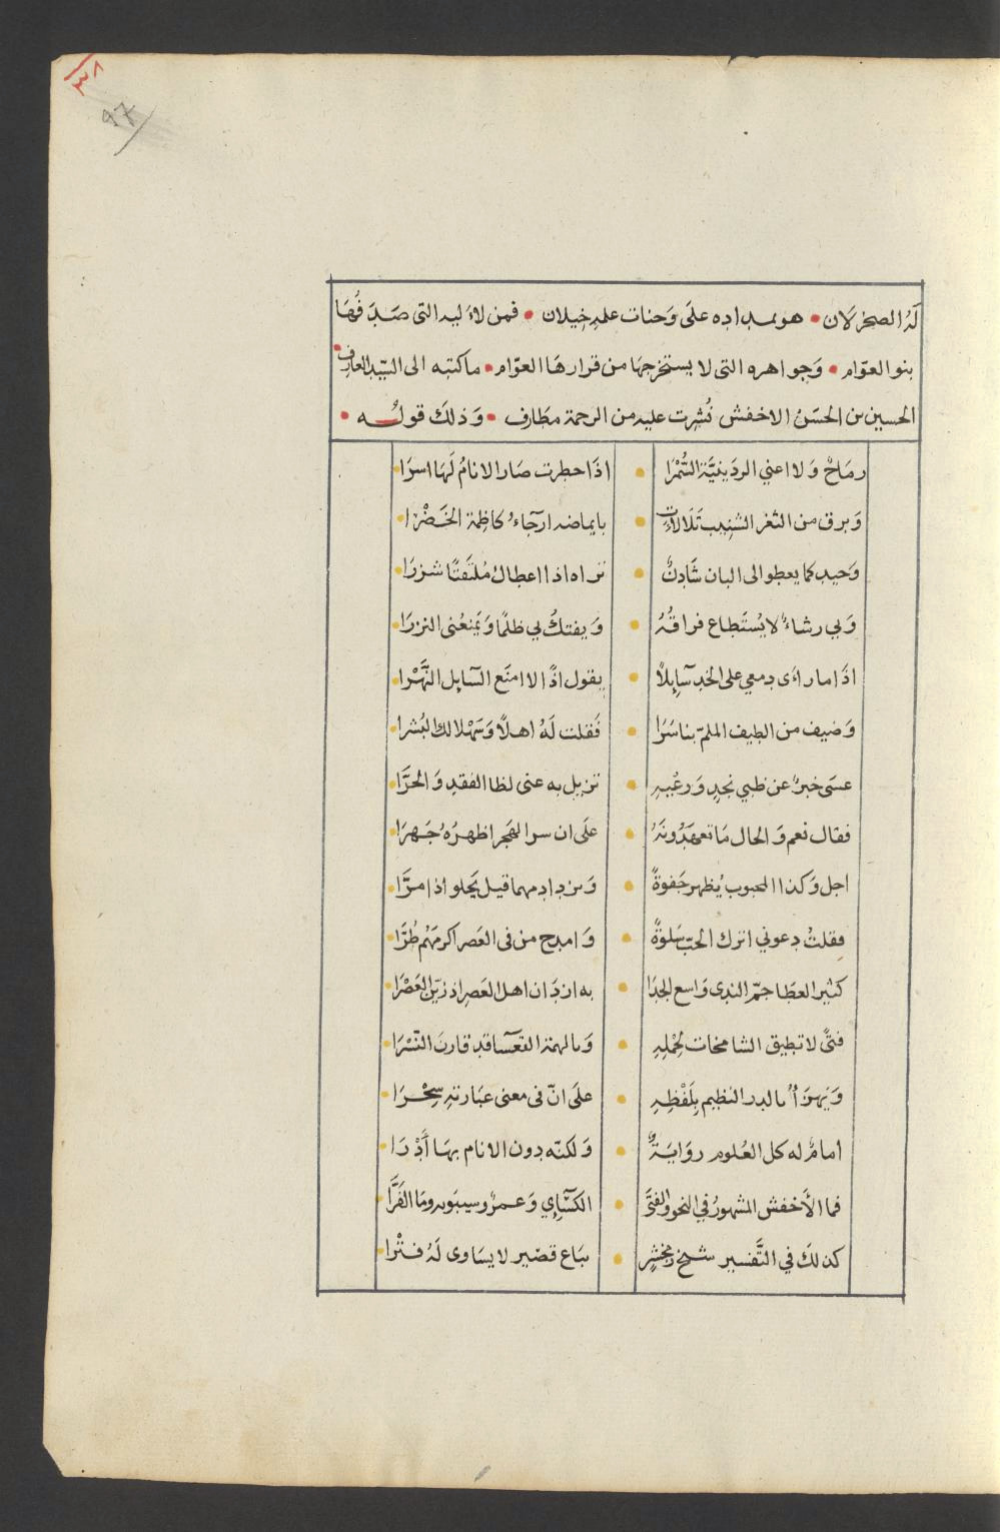 له الصخر لان • هو بمداده على وجنات علمه خيلان • فمن لاءليه التى صدفها
بنو العوّام • وَجواهره التى لا يستخرجها من قرارها العوّام • ما كتبه الى السّيد العارف
الحسين بن الحسَن الاخفش نُشِرت عليه من الرحمة مطَارف • وَذلكَ قولُه •
رمَاحٌ وَلا اعني الردَينيَّة السُّمْرَا • اذَا خطرت صَار الانامُ لَهَا اسرَا
وَبرق من الثغر الشنيب تَلَالأت • بايماضه ارجَاءُ كاظِمة الخَضْرَا
وَجيد كما يعطو الى البان شَادِنٌ • تراه اذا اعطالُ مُلتَفتًا شزرَا
وَبي رشاءٌ لا يُستَطاع فراقُهُ • وَيفتكُ بي ظلمًا وَيَمنعُنى النزرَا
اذَا ما راءَى دمعي على الخد سَايِلاً • يقول اذًا لا امنَع السَايل النَّهْرا
وَضيف من الطيف الملمّ بنا سَرَا • فَقلت لَهُ اهلاً وَسَهْلا لك البُشرا
عسَى خبرٌ عن ظبي نجدٍ وَرعْيهِ • تزيل به عنى لظا الفقد وَالحرَّا
فقال نعم وَالحال مَا تعهَدُونَهُ • علَى ان سر الهجر اظهرُهُ جَهرَا
اجل وَكذا المحبوب يُظهر جَفوةً • وَيزداد مهما قيل يَحلو اذا مرَّا
فقلتُ دعوني اترك الحبّ سَلوةً • وَامدح من فى العَصر اكرمَهُم طُرَّا
كثير العطَا جمّ الندى وَاسع الجدَا • به ازدَان اهل العَصر اذ زيّن العَصْرَا
فتًى لا تطيق الشامخات لحِلمِهِ • وَبالهمة القَعسَا قد قارن النّسْرَا
وَيهزَأُ بالدر النظيم بِلَفْظِهِ • علَى انّ فى معنى عبَارتهِ سِحْرَا
امامٌ له كل العُلوم روَايَةٌ • وَلكنّه دون الانام بهَا أدْرَا
فما الأَخفش المشهورُ في النحو وَالفتَى • الكسَّاءي وَعمرٌو سيبَويه ومَا الفَرَّا
كذلكَ في التَّفسير شيخ زمخشرٍ • ببَاع قصَير لا يسَاوى لَهُ فتْرا